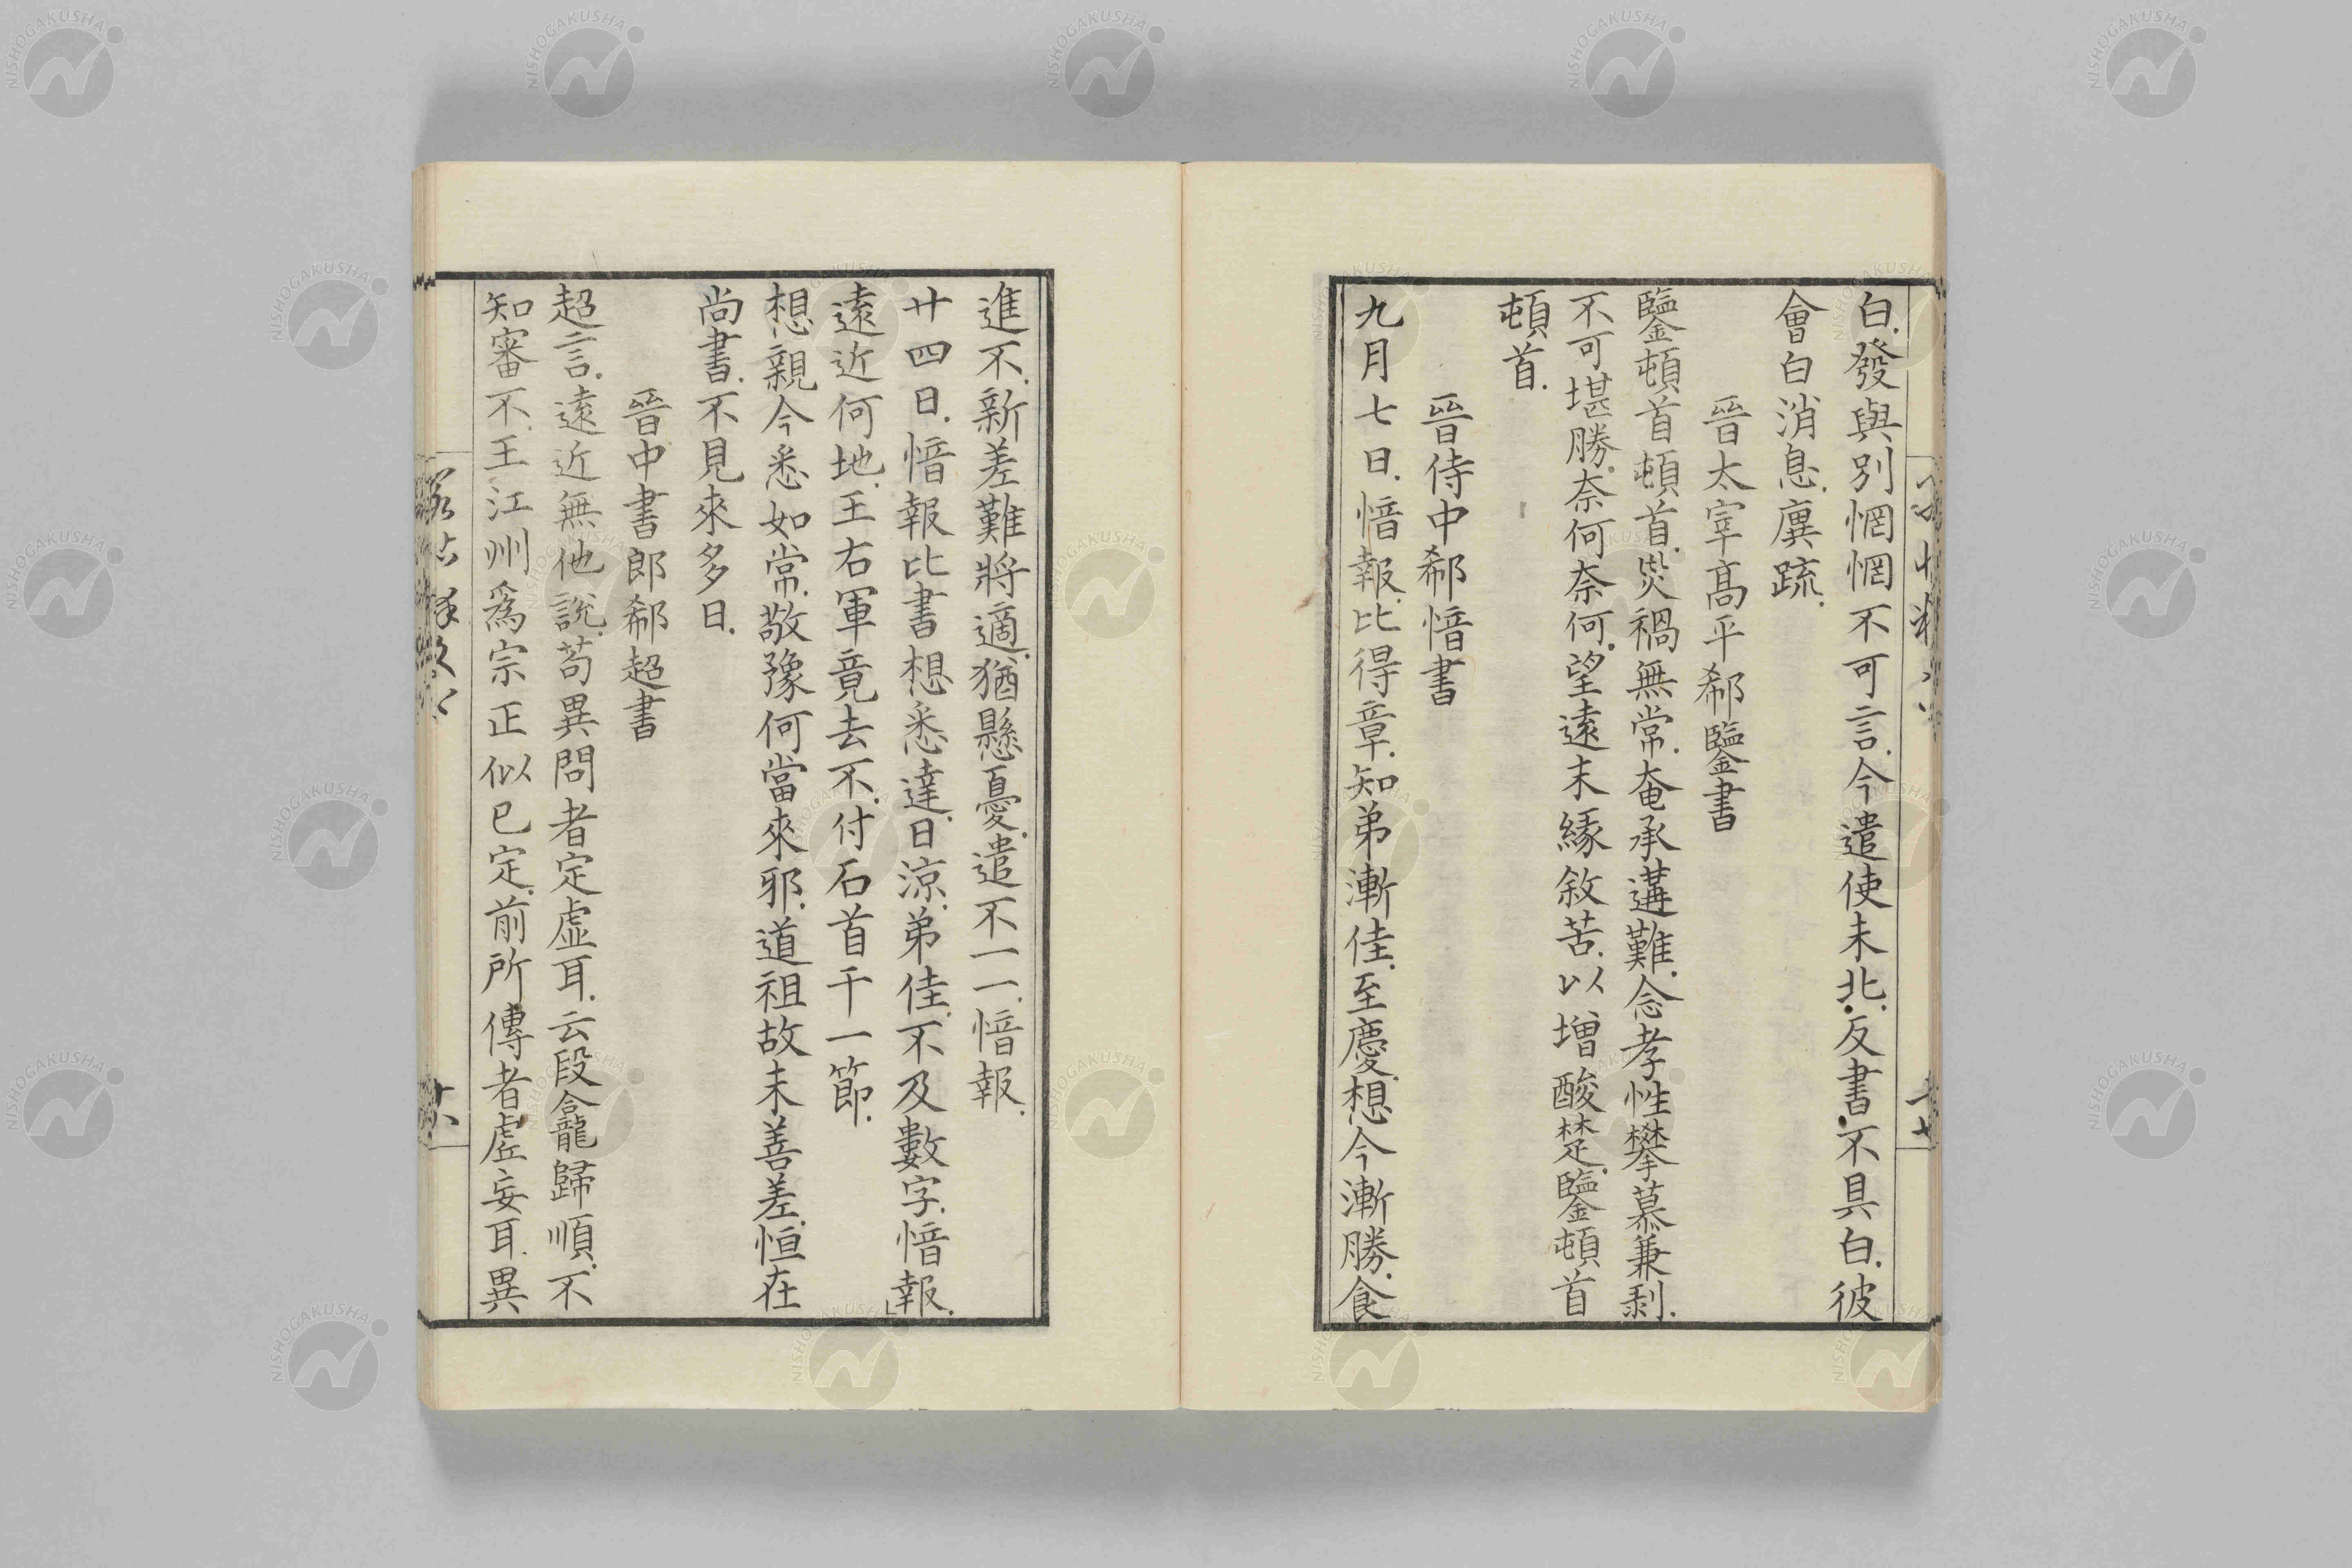 白.發與別惘惘不可言.今遣使未北.反書.不具白.彼
會白消息.廙疏.
晉太宰高平郗鑒書
鑒頓首頓首.災禍無常.奄承遘難.念孝性攀慕兼剥.
不可堪勝.奈何奈何.望遠未緣敘苦.以增酸楚.鑒頓首
頓首.
晉侍中郗愔書
九月七日.愔報.比得章.知弟漸佳.至慶.想今漸勝.食
進不.新差難將適.猶懸憂.遣不一一.愔報.
廿四日.愔報比書想悉達.日涼.弟佳.不及數字.愔報.
遠近何地.王右軍竟去不.付石首干一節.
想親今悉如常.敬豫何當來邪.道祖故未善差.恒在
尚書.不見來多日.
晉中書郎郗超書
超言.遠近無他說.苟異問者定虛耳.云段龕歸順.不
知審不.王江州爲宗正似已定.前所傳者虛妄耳.異
NISHOGAKUSHA